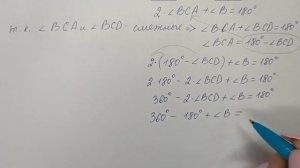 2·∠BCA + ∠B = 180°
т.к. ∠BCA и ∠BCD - смежные => ∠BCA + ∠BCD = 180°
∠BCA = 180° - ∠BCD
2·(180° - ∠BCD) + ∠B = 180°
2·180° - 2·∠BCD + ∠B = 180°
360° - 2·∠BCD + ∠B = 180°
360° - 180° + ∠B =